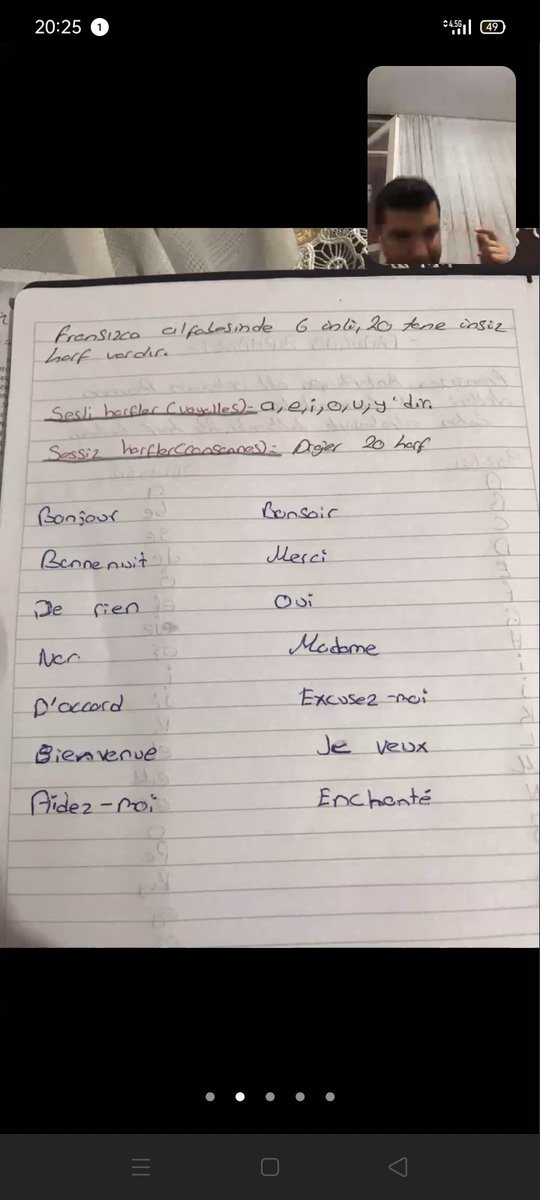 20:25 1 4.5G 49
Fransızca alfabesinde 6 ünlü, 20 tane ünsüz
harf vardır.
Sesli harfler (voyelles)= a, e, i, o, u, y'dir.
Sessiz harfler(consonnes)= Diğer 20 harf
Bonjour Bonsoir
Bonne nuit Merci
De rien Oui
Non Madame
D'accord Excusez-moi
Bienvenue Je veux
Aidez-moi Enchanté